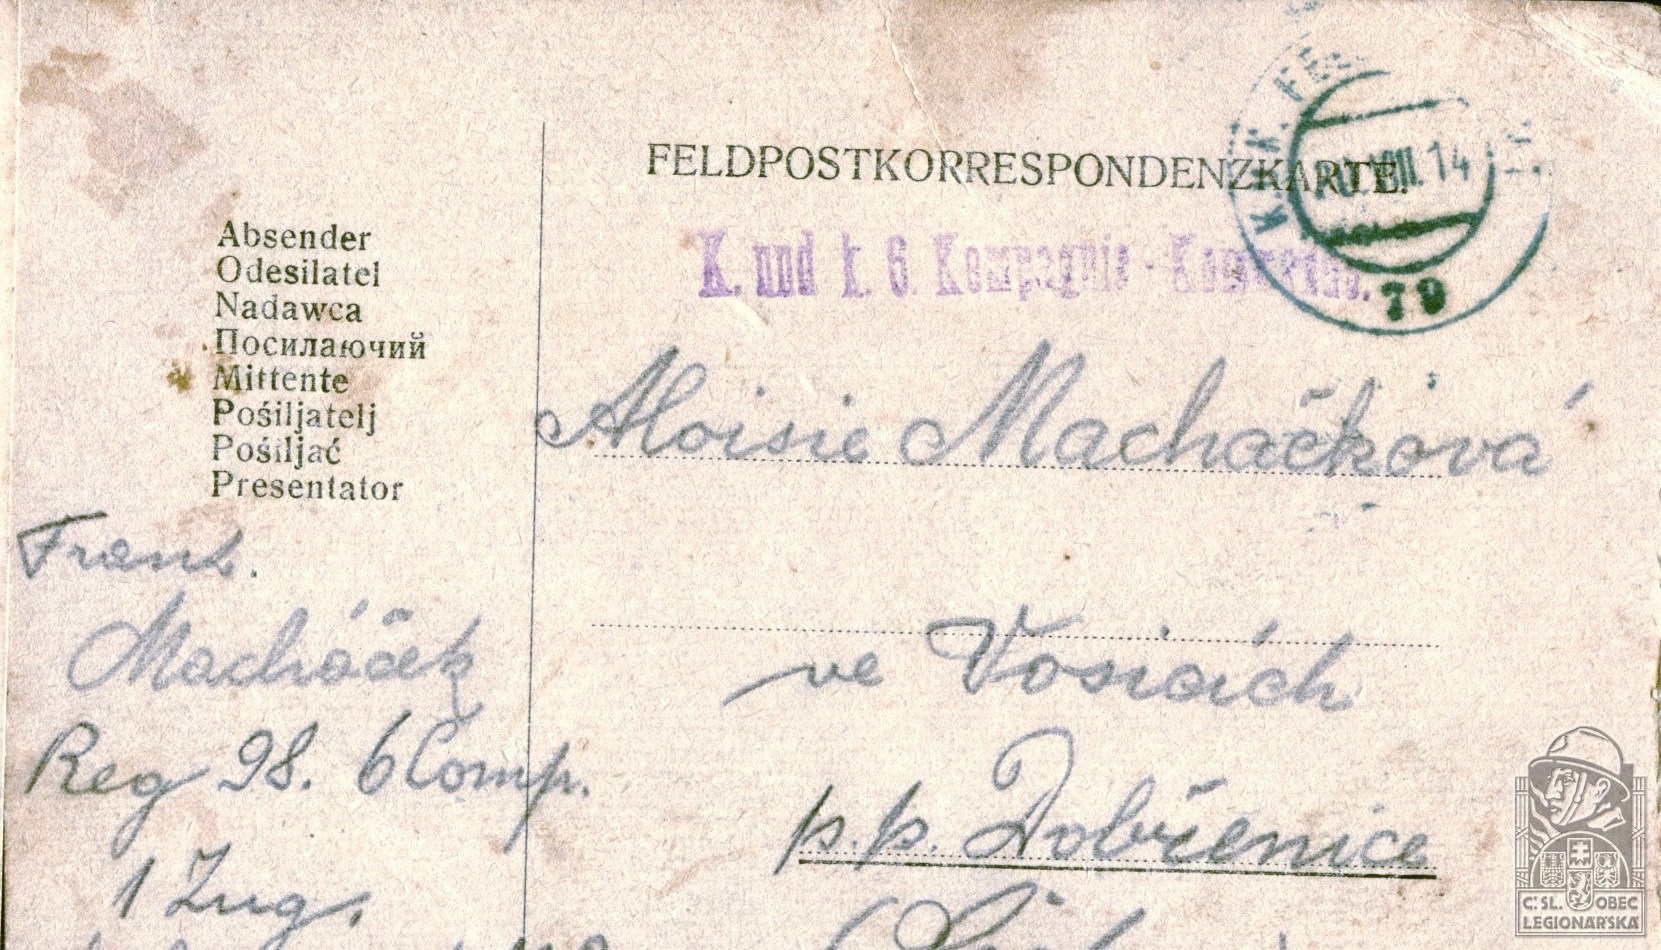 FELDPOSTKORRESPONDENZKARTE.
K. und k. 6. Kompagnie-
79
Absender
Odesílatel
Nadawca
Посилаючий
Mittente
Pošiljatelj
Pošiljač
Presentator
Franz.
Macháček
Reg 98. 6 Comp.
1 Zug.
Aloisie Macháčková
ve Vosicích
p.p. Dobřenice
Č.SL. OBEC
LEGIONÁŘSKÁ